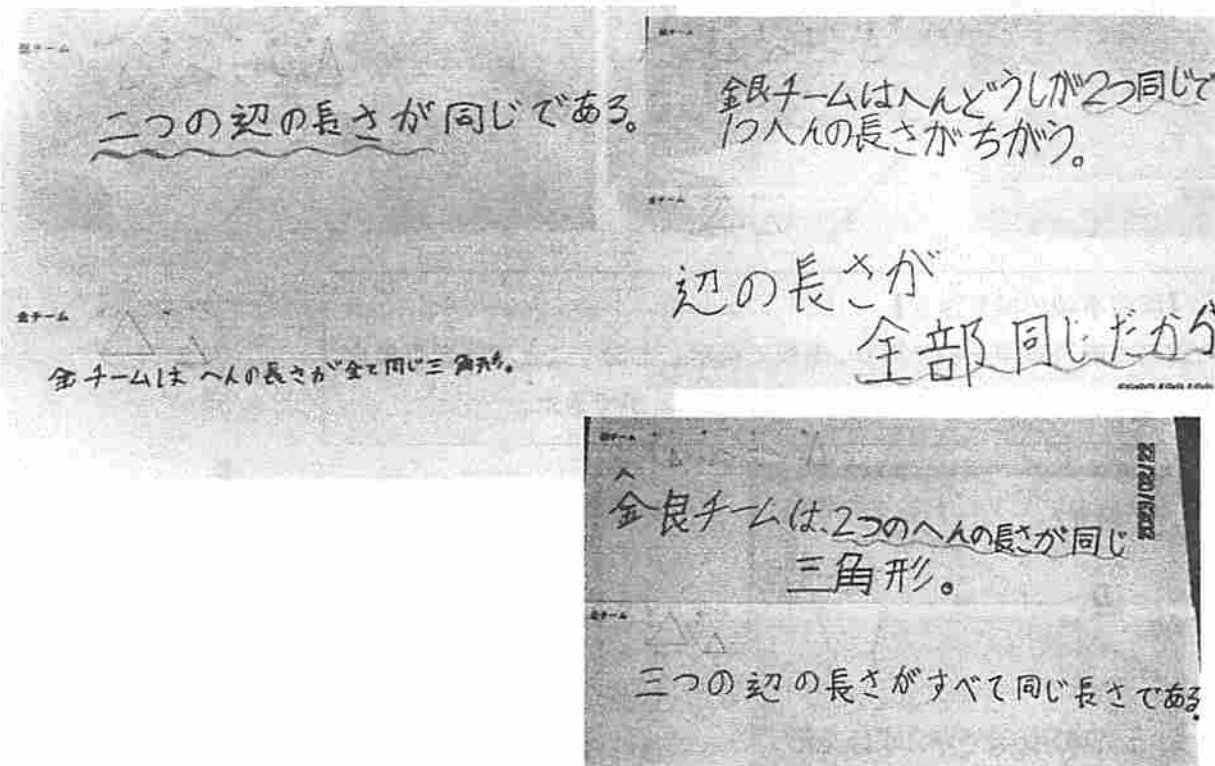 銀チーム
二つの辺の長さが同じである。
金チーム
金チームは へんの長さが全て同じ三角形。
銀チーム
銀チームはへんどうしが2つ同じで
1つへんの長さがちがう。
金チーム
辺の長さが
全部同じだから
銀チーム
銀チームは、2つのへんの長さが同じ
三角形。
金チーム
三つの辺の長さがすべて同じ長さである。